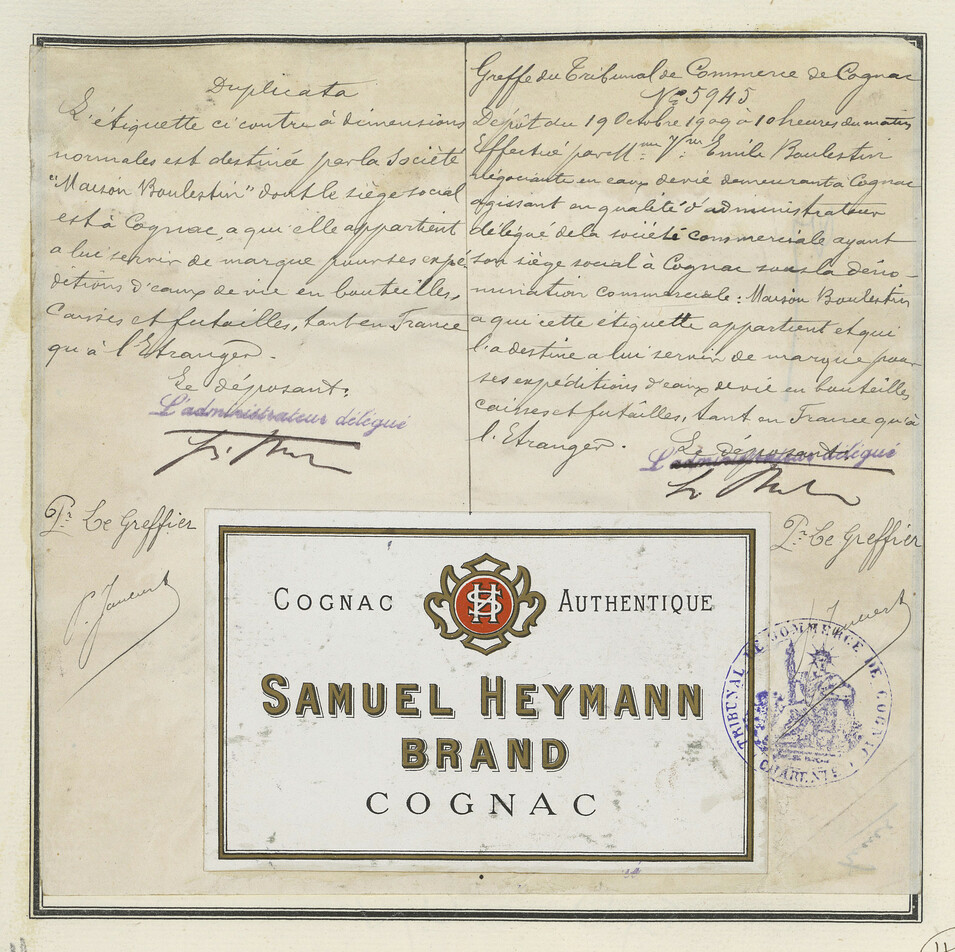 Duplicata
L'étiquette ci contre à dimensions
normales est destinée par la Société
"Maison Boulestin" dont le siège social
est à Cognac, a qui elle appartient
a lui servir de marque pour ses expé-
ditions d'eaux de vie en bouteilles,
Caisses et futailles, tant en France
qu'à l'Etranger.
Le déposant:
L'administrateur délégué
Pr. Le Greffier
Greffe du Tribunal de Commerce de Cognac
No 5945
Dépôt du 19 Octobre 1909 à 10 heures du matin
Effectué par Emile Boulestin
négociante en eaux de vie demeurant à Cognac
agissant en qualité d'administrateur
délégué de la société commerciale ayant
son siège social à Cognac sous la déno-
mination commerciale: Maison Boulestin
a qui cette étiquette appartient et qui
l'a destine a lui servir de marque pour
ses expéditions d'eaux de vie en bouteilles
caisses et futailles, tant en France qu'à
l'Etranger.
Le déposant
L'administrateur délégué
Pr. Le Greffier
COGNAC AUTHENTIQUE
SH
SAMUEL HEYMANN
BRAND
COGNAC
TRIBUNAL DE COMMERCE DE COGNAC
CHARENTE